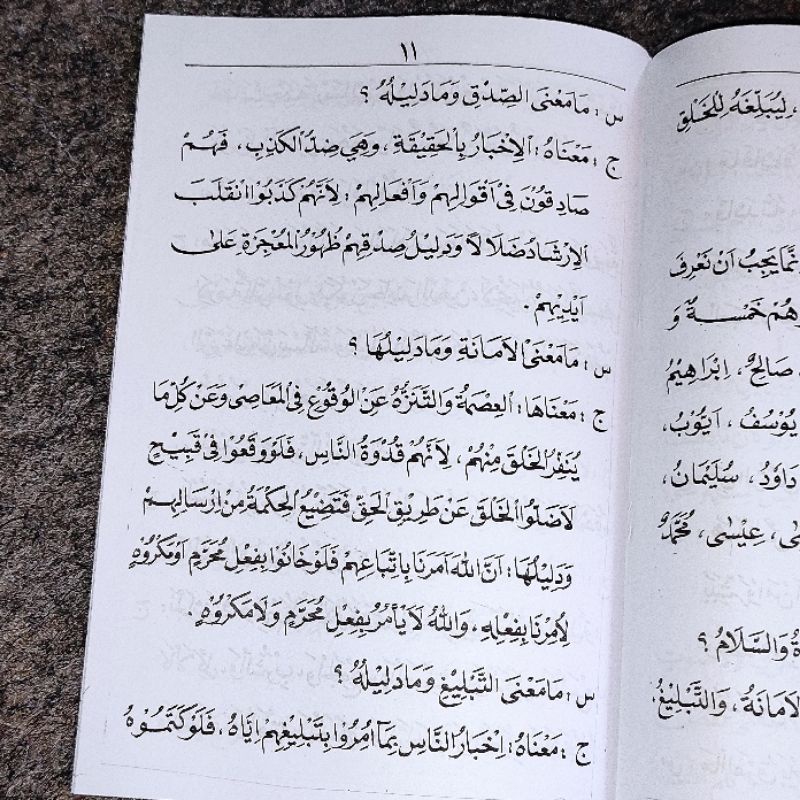 ١١
س : مَا مَعْنَى الصِّدْقِ وَمَا دَلِيْلُهُ ؟
ج : مَعْنَاهُ : اَلْاِخْبَارُ بِالْحَقِيْقَةِ ، وَهِيَ ضِدُّ الْكَذِبِ ، فَهُمْ
صَادِقُوْنَ فِيْ اَقْوَالِهِمْ وَاَفْعَالِهِمْ ؛ لِاَنَّهُمْ كَذَبُوْا انْقَلَبَ
الْاِرْشَادُ ضَلَالًا وَدَلِيْلُ صِدْقِهِمْ ظُهُوْرُ الْمُعْجِزَةِ عَلَى
اَيْدِيْهِمْ .
س : مَا مَعْنَى الْاَمَانَةِ وَمَا دَلِيْلُهَا ؟
ج : مَعْنَاهَا : اَلْعِصْمَةُ وَالتَّنَزُّهُ عَنِ الْوُقُوْعِ فِي الْمَعَاصِيْ وَعَنْ كُلِّ مَا
يُنَفِّرُ الْخَلْقَ مِنْهُمْ ، لِاَنَّهُمْ قُدْوَةُ النَّاسِ ، فَلَوْ وَقَعُوْا فِيْ قَبِيْحٍ
لَاَضَلُّوا الْخَلْقَ عَنْ طَرِيْقِ الْحَقِّ فَتَضِيْعُ الْحِكْمَةُ مِنْ اِرْسَالِهِمْ
وَدَلِيْلُهَا : اَنَّ اللهَ اَمَرَنَا بِاتِّبَاعِهِمْ فَلَوْ خَانُوْا بِفِعْلِ مُحَرَّمٍ اَوْ مَكْرُوْهٍ
لَاُمِرْنَا بِفِعْلِهِ ، وَاللهُ لَا يَأْمُرُ بِفِعْلِ مُحَرَّمٍ وَلَا مَكْرُوْهٍ .
س : مَا مَعْنَى التَّبْلِيْغِ وَمَا دَلِيْلُهُ ؟
ج : مَعْنَاهُ : اِخْبَارُ النَّاسِ بِمَا اُمِرُوْا بِتَبْلِيْغِهِمْ اِيَّاهُ ، فَلَوْ كَتَمُوْهُ
، لِيُبَلِّغَهُ لِلْخَلْقِ
يَجِبُ اَنْ نَعْرِفَ
خَمْسَةٌ وَ
صَالِحٌ ، اِبْرَاهِيْمُ
يُوْسُفُ ، اَيُّوْبُ ،
دَاوُدُ ، سُلَيْمَانُ ،
، عِيْسَى ، مُحَمَّدٌ
وَالسَّلَامُ ؟
، وَالتَّبْلِيْغُ .